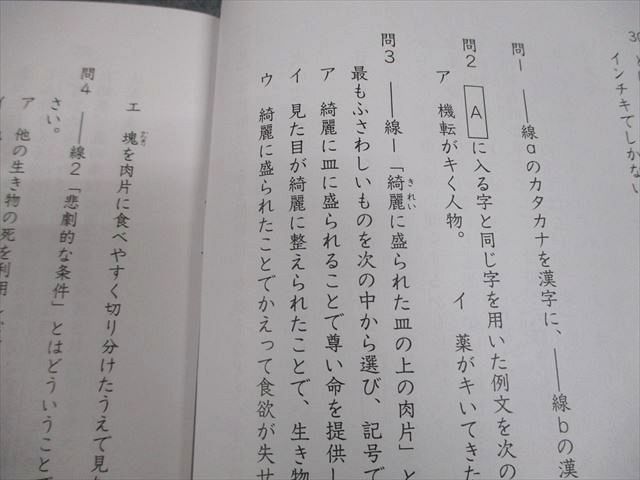 インチキでしかない
問1 ――線aのカタカナを漢字に、――線bの漢
問2 Aに入る字と同じ字を用いた例文を次の
ア 機転がキく人物。 イ 薬がキいてきた
問3 ――線1「綺麗に盛られた皿の上の肉片」と
きれい
最もふさわしいものを次の中から選び、記号で
ア 綺麗に皿に盛られることで尊い命を提供し
イ 見た目が綺麗に整えられたことで、生き物
ウ 綺麗に盛られたことでかえって食欲が失せ
エ 塊を肉片に食べやすく切り分けたうえで見
問4 ――線2「悲劇的な条件」とはどういうことで
さい。
ア 他の生き物の死を利用し